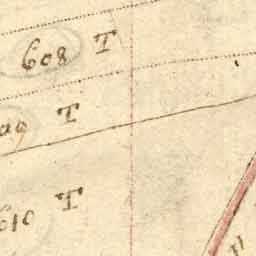 608 T
T
610 T